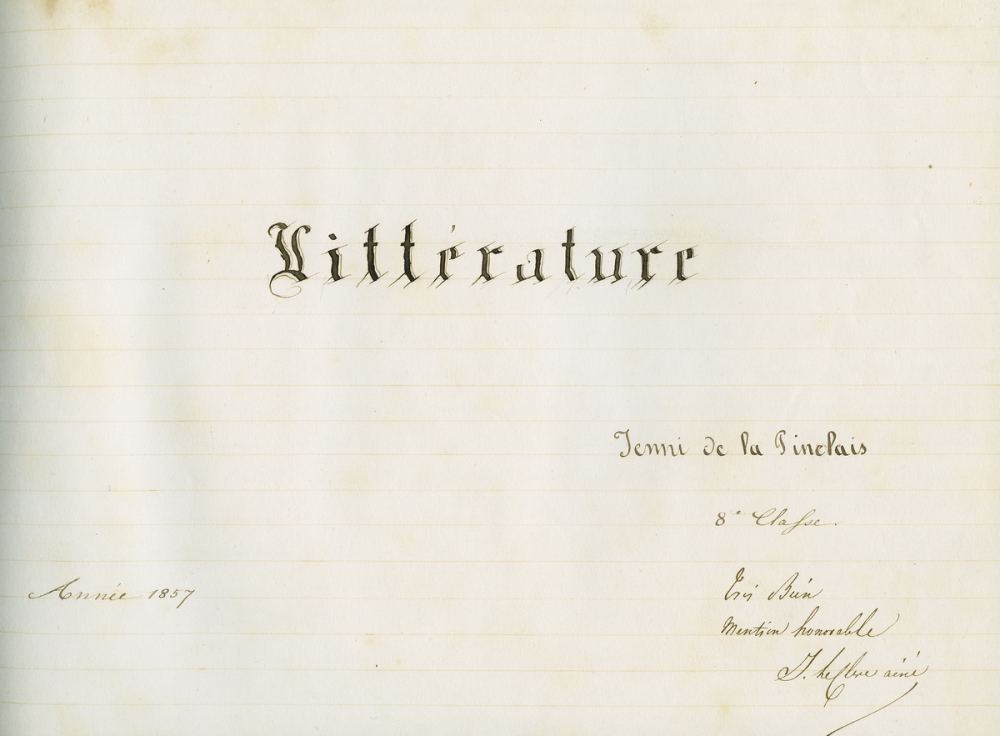 Littérature
Jenni de la Pinelais
8e Classe.
Année 1857
Très Bien
Mention honorable
J. ainé